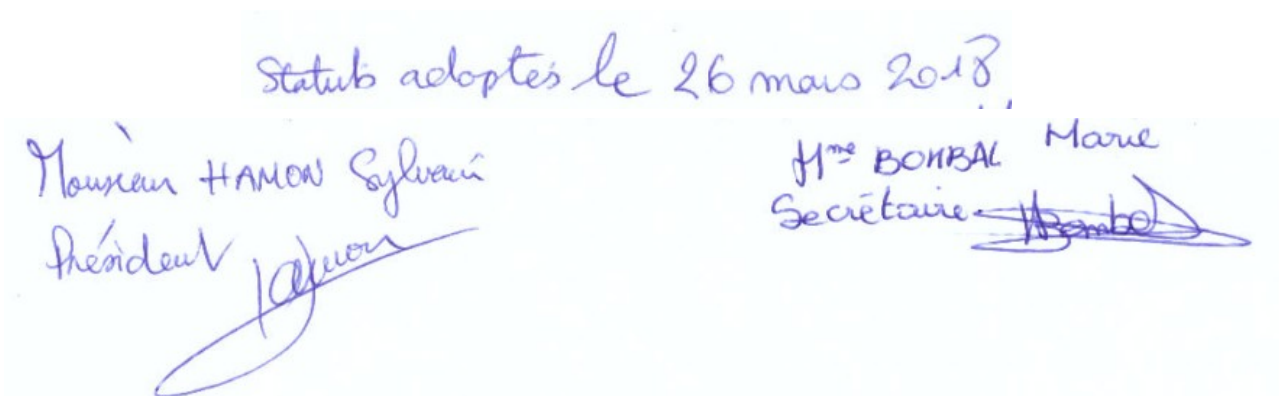 Statuts adoptés le 26 mars 2018
Monsieur HAMON Sylvain
Président
Hamon
Mme BOMBAL Marie
Secrétaire MBombal